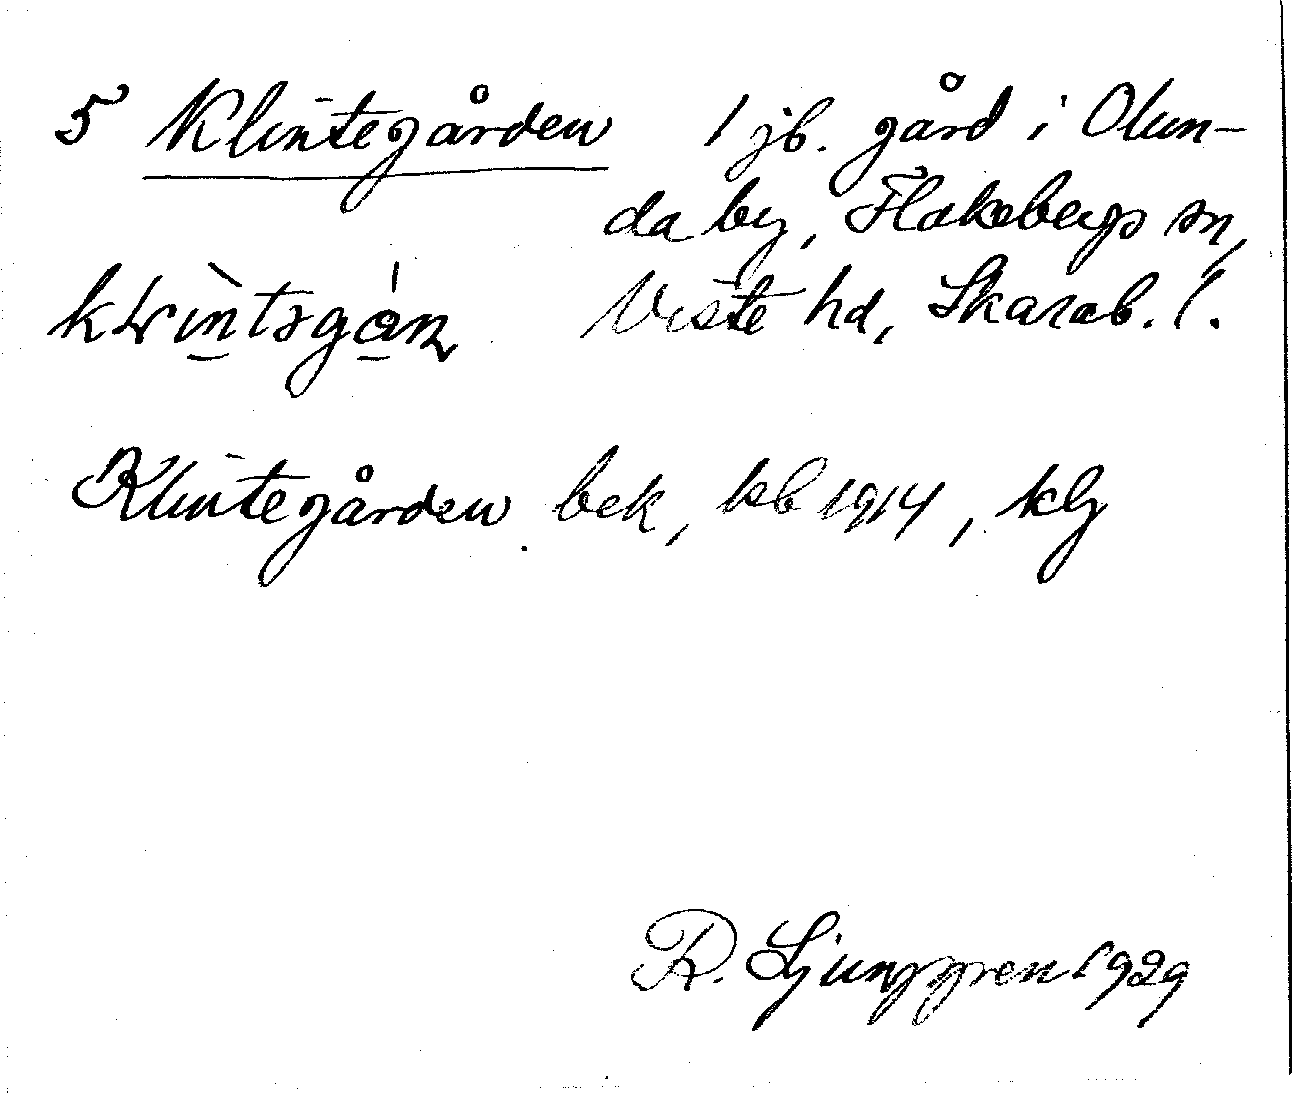 5 Klintegården 1 jb. gård i Olun-
da by, Flakebergs sn,
Viste hd, Skarab. l.
Klintegården bek, kb 1914, klj
R. Ljunggren 1929